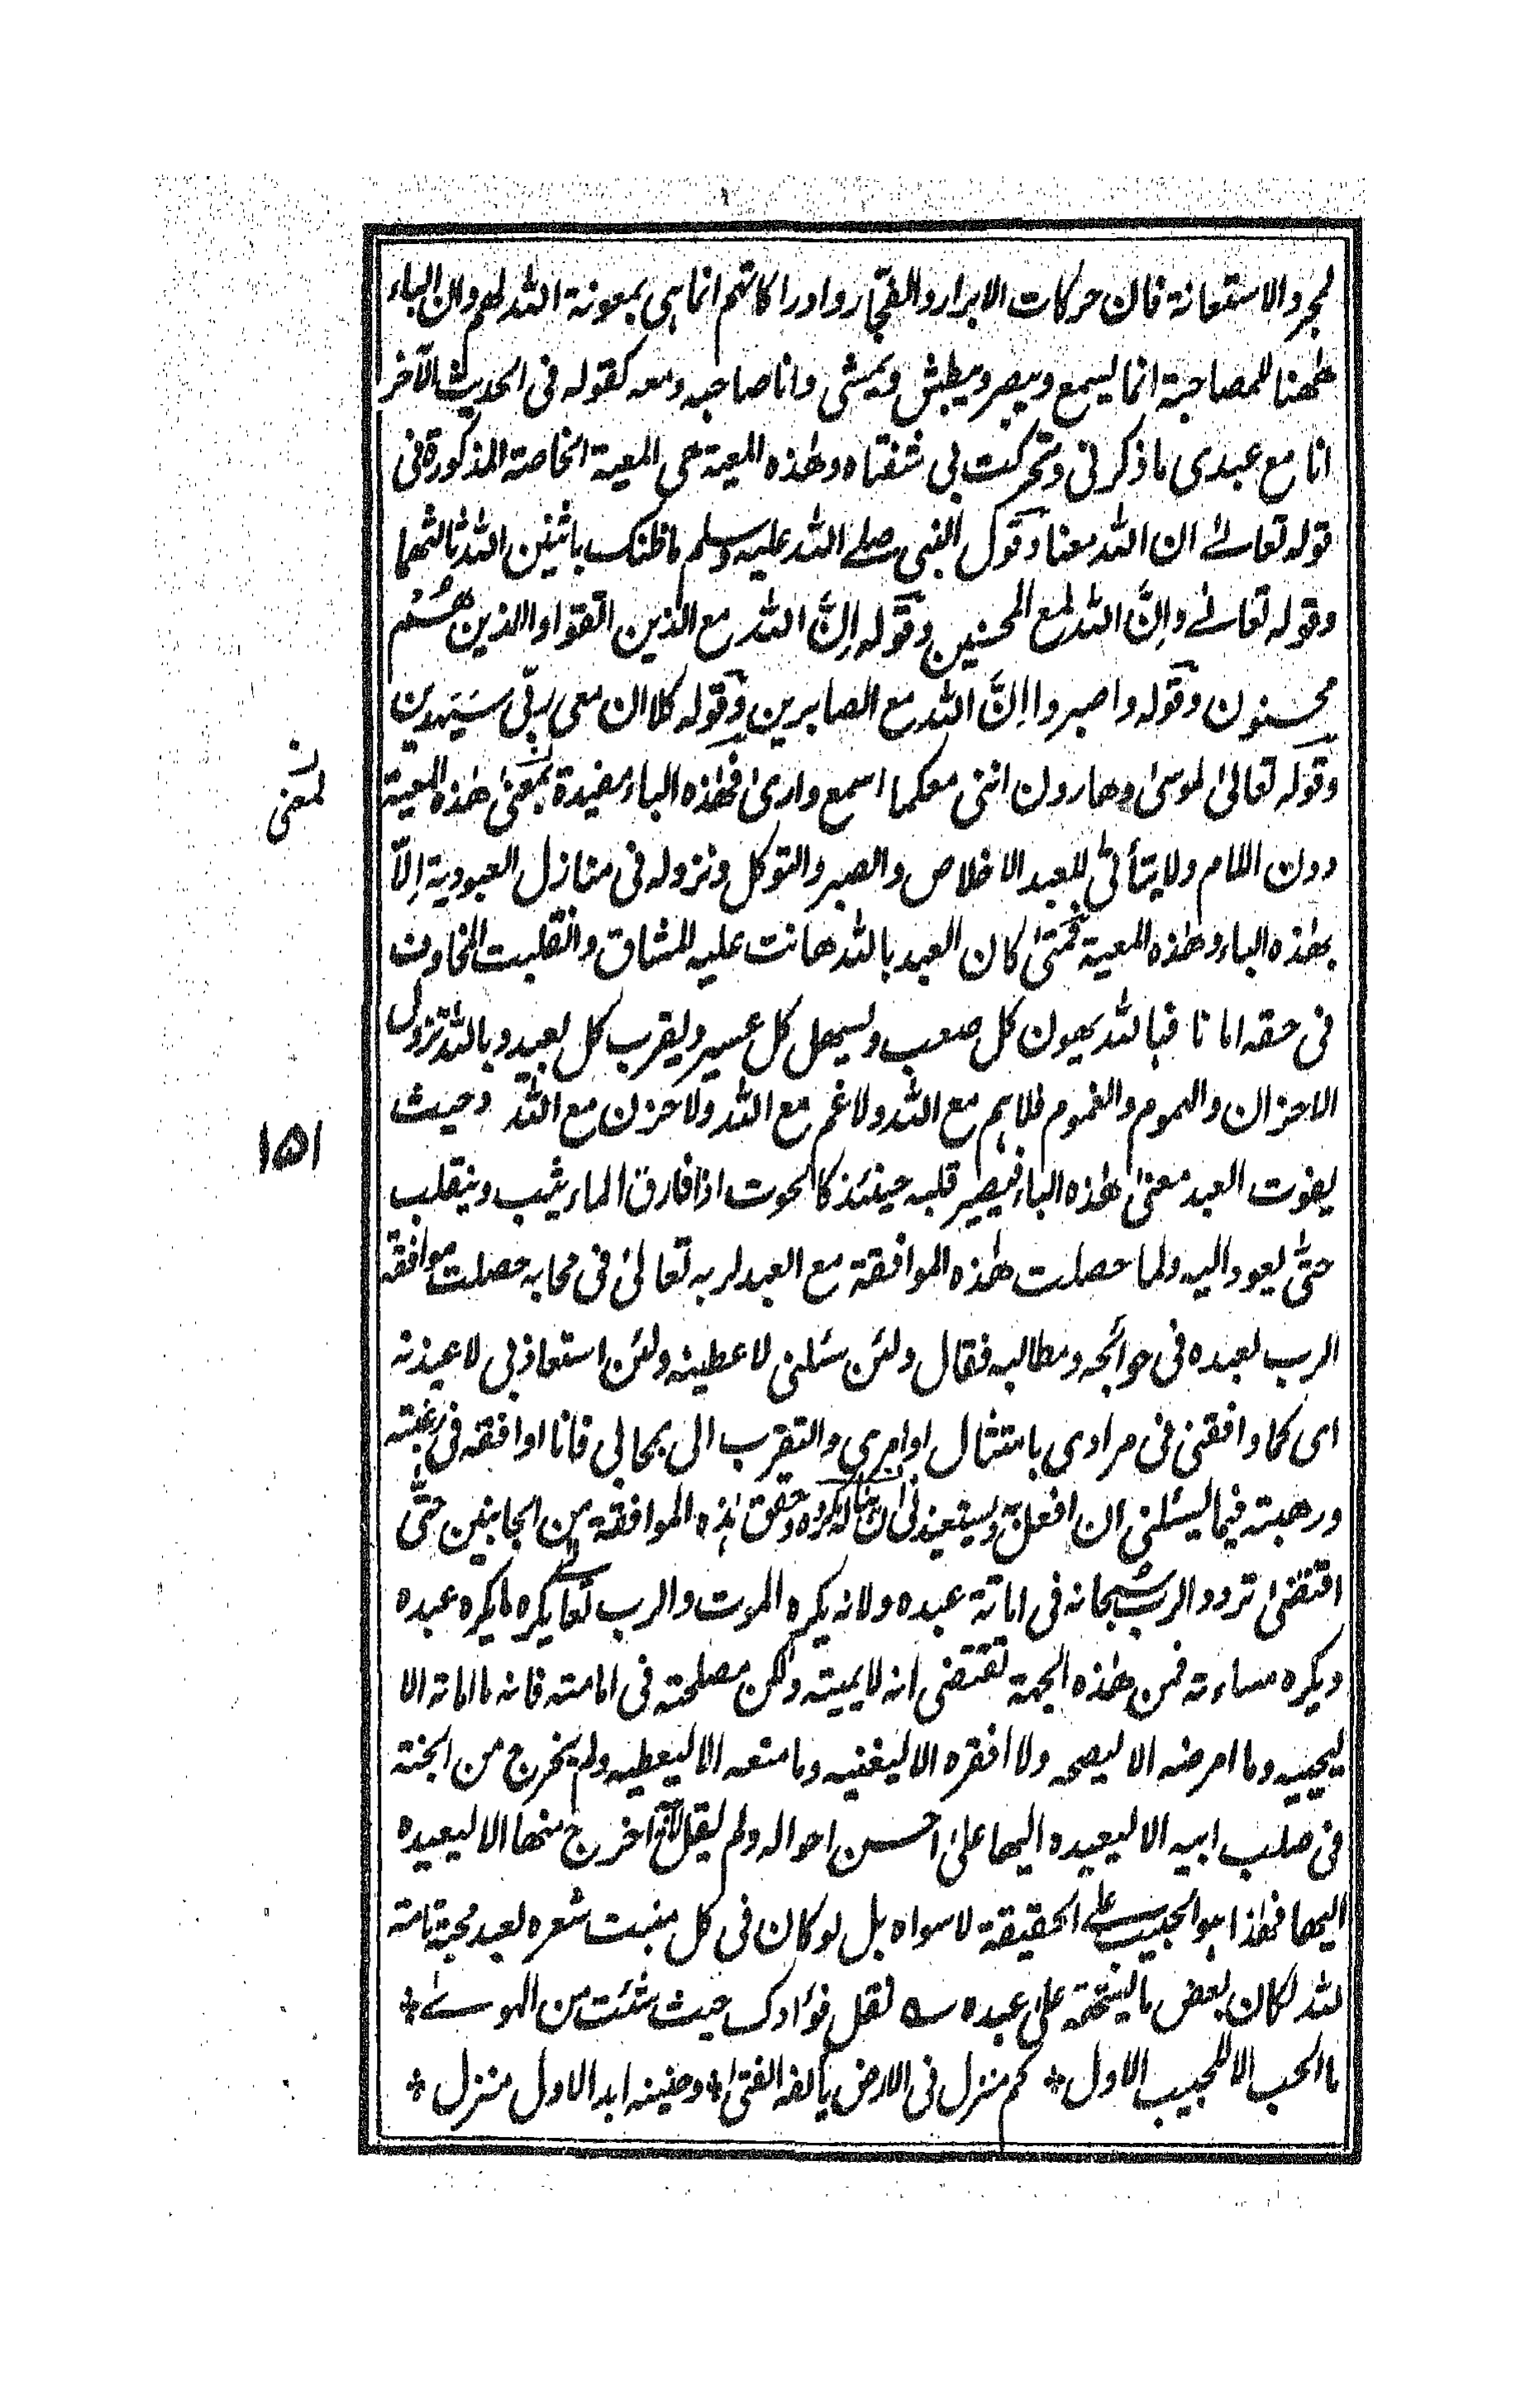 لمجرد الاستعانة فان حركات الابرار والفجار وادراكاتهم انما هى بمعونة الله لهم وان الباء
ههنا للمصاحبة انما يسمع ويبصر ويبطش ويمشى وانا صاحبه ومعه كقوله فى الحديث الآخر
انا مع عبدى ماذكرنى وتحركت بى شفتاه وهذه المعية هى المعية الخاصة المذكورة فى
قوله تعالى ان الله معنا وقول النبى صلى الله عليه وسلم ماظنك باثنين الله ثالثهما
وقوله تعالى واِنَّ الله لمع المحسنين وقوله اِنَّ الله مع الذين اتقوا والذين هُم
محسنون وقوله واصبروا اِنَّ الله مع الصابرين وقوله كلا ان معى ربّى سَيَهدين
وقوله تعالىٰ لموسىٰ وهارون اننى معكما اسمع وارىٰ فهٰذه الباء مفيدة بمعنىٰ هٰذه المعية
دون اللام ولا يتأتىّ للعبد الاخلاص والصبر والتوكل ونزوله فى منازل العبودية اِلاّ
بهٰذه الباء وهٰذه المعية فمتىٰ كان العبد بالله هانت عليه المشاق وانقلبت المخاوف
فى حقه امانا فبالله يهون كل صعب ويسهل كل عسير ويقرب كل بعيد وبالله تزول
الاحزان والهموم والغموم فلا هم مع الله ولا غم مع الله ولا حزن مع الله وحيث
يفوت العبد معنىٰ هٰذه الباء فيصير قلبه حينئذ كالحوت اذا فارق الماء يثب وينقلب
حتّٰى يعود اليه ولما حصلت هٰذه الموافقة مع العبد لربه تعالىٰ فى محابه حصلت موافقة
الرب لعبده فى حوائجه ومطالبه فقال ولئن سئلنى لاعطينه ولئن استعاذ بى لاعيذنه
اى كما وافقنى فى مرادى بامتثال اوامرى والتقرب الى بمحابى فانا اوافقه فى رغبته
ورهبته فيما يسئلنى ان افعل به ويستعيذ بى ان يناله مكروه وحقق هٰذه الموافقة من الجانبين حتّٰى
اقتضىٰ تردد الرب سبحانه فى اماتة عبده ولانه يكره الموت والرب تعالے يكره مايكره عبده
ويكره مساءته فمن هٰذه الجهة تقتضى انه لا يميته ولكن مصلحته فى اماتته فانه مااماته الا
ليحييه وما امرضه الا ليصحه ولا افقره الا ليغنيه وما منعه الا ليعطيه ولم يخرج من الجنة
فى صلب ابيه الا ليعيده اليها علىٰ احسن احواله ولم يقل لآدم اخرج منها الا ليعيده
اليها فهٰذا هو الحبيب علے الحقيقة لا سواه بل لو كان فى كل منبت شعره لعبد محبة تامة
لله لكان بعض مايستحقه علىٰ عبده ؎ نقل فؤادك حيث شئت من الهوىٰ *
ما الحب الا للحبيب الاول * كم منزل فى الارض يألفه الفتىٰ * وحنينه ابدا لاول منزل *
ن
لمعنى
١٥١